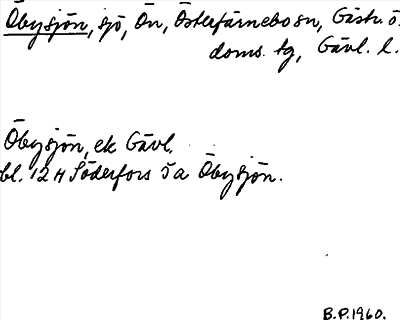 Öbysjön, sjö, Ön, Österfärnebo sn, Gästr. ö.
doms. tg, Gävl. l.
Öbysjön, ek Gävl.
bl. 12 H Söderfors 5 a Öbysjön.
B.P.1960.